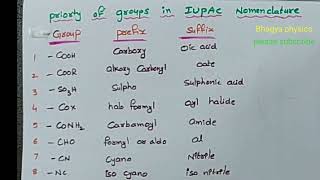 priority of groups in IUPAC Nomenclature
Group prefix suffix
Bhagya physics
please subscribe
1 - COOH Carboxy Oic acid
2 - COOR alkoxy Carbonyl oate
3 - SO3H Sulpho Sulphonic acid
4 - COX halo formyl oyl halide
5 - CONH2 Carbamoyl amide
6 - CHO formyl or aldo al
7 - CN cyano Nitrile
8 - NC iso cyano iso nitrile